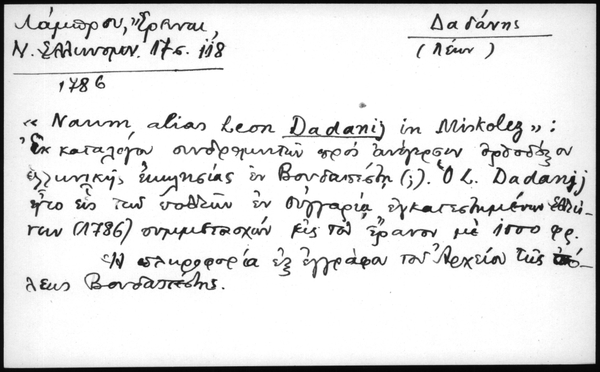 Λάμπρου, Ἔρευναι,
Ν. Ἑλληνομν. 17 σ. 118
1786
Δαδάνης
(Λέων)
« Naum alias Leon Dadanij in Miskolcz » :
Ἐκ καταλόγου συνδρομητῶν πρὸς ἀνέγερσιν ὀρθοδόξου
ἑλληνικῆς ἐκκλησίας ἐν Βουδαπέστῃ (;). Ὁ L. Dadanij
ἦτο εἷς τῶν πολλῶν ἐν Οὑγγαρίᾳ ἐγκατεστημένων Ἑλλή-
νων (1786) συμμετασχὼν εἰς τὸν ἔρανον μὲ 1000 φρ.
Ἡ πληροφορία ἐξ ἐγγράφου τοῦ Ἀρχείου τῆς πό-
λεως Βουδαπέστης.